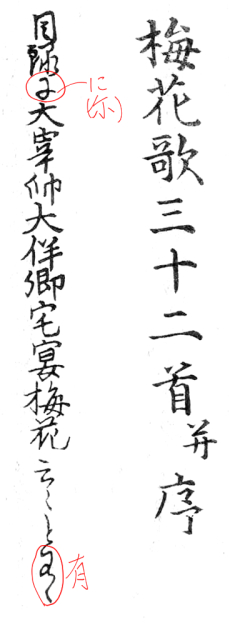 梅花歌三十二首并序
目録に大宰帥大伴卿宅宴梅花云々と有
に
(尓)
有